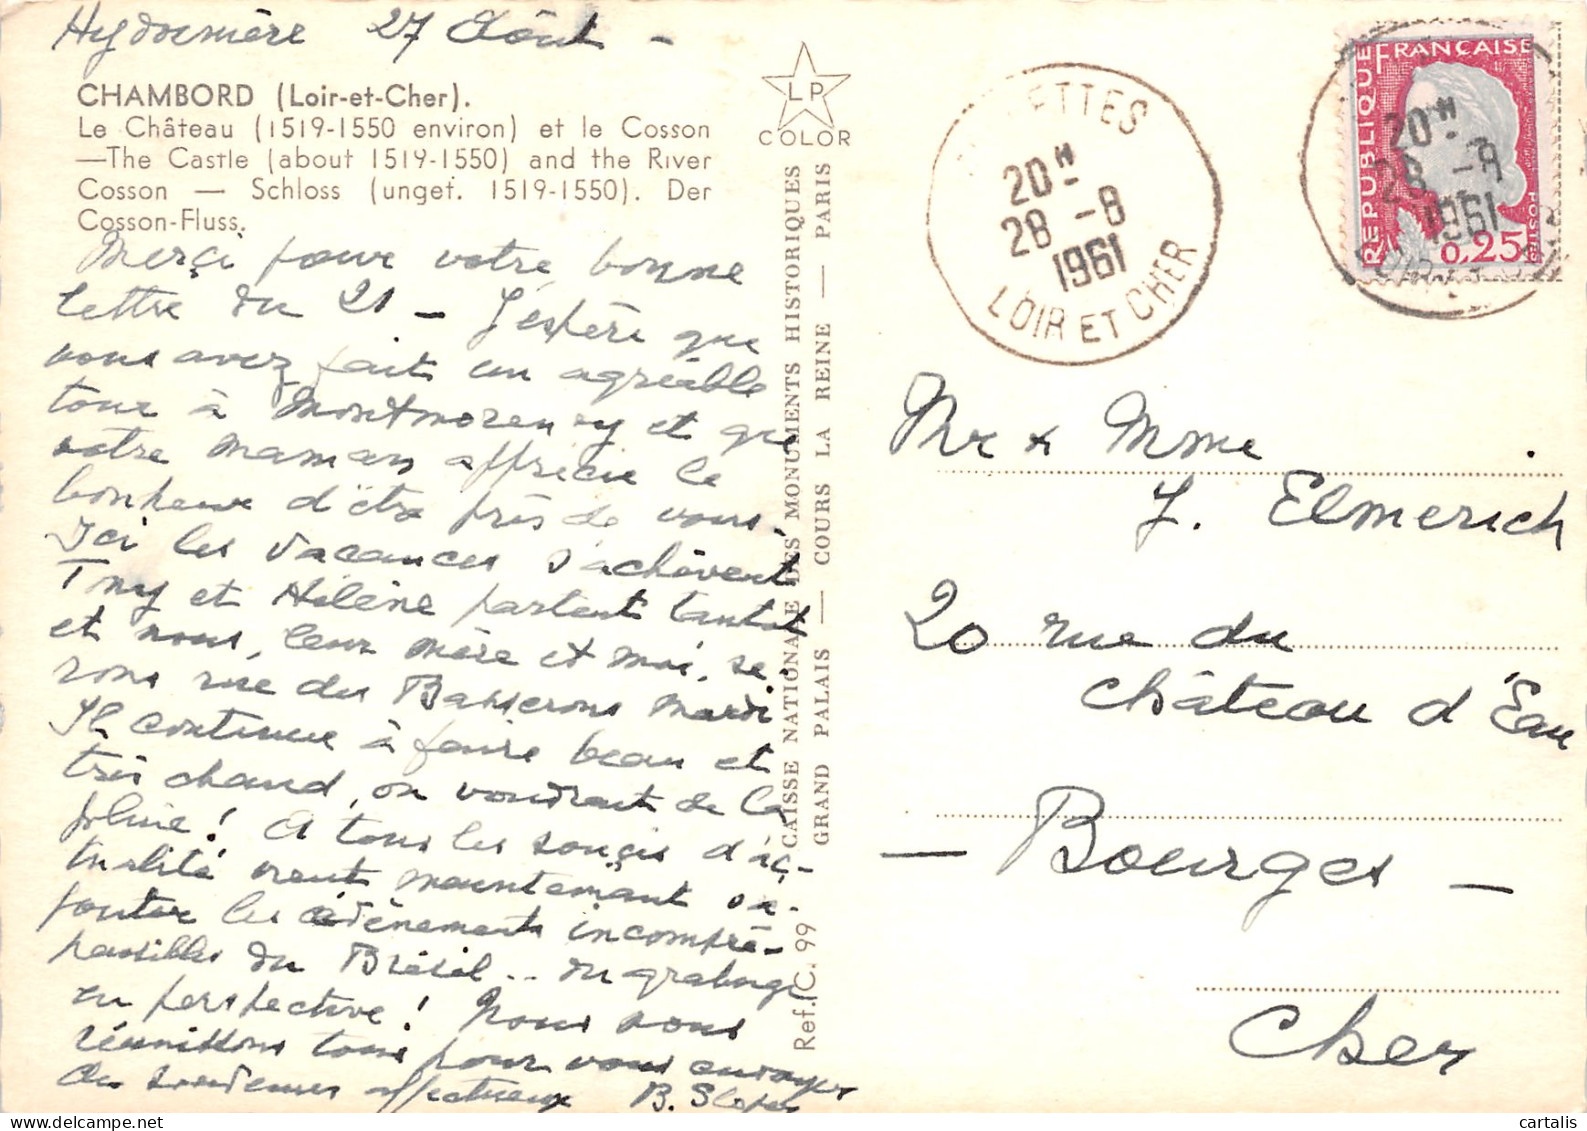 27 Août -
CHAMBORD (Loir-et-Cher).
Le Château (1519-1550 environ) et le Cosson
—The Castle (about 1519-1550) and the River
Cosson — Schloss (unget. 1519-1550). Der
Cosson-Fluss.
Merci pour votre bonne
lettre du 21 - J'espère que
vous avez fait un agréable
tour à Montmorency et que
votre maman apprécie le
bonheur d'être près de vous.
Ici les vacances s'achèvent
Tny et Hélène partent tantôt
et nous, leur mère et moi, se-
rons rue des Mardi
Il continue à faire beau et
très chaud, on voudrait de la
pluie ! A tous les soucis d'ac-
tualité vient maintenant s'a-
jouter les évènements incompré-
hensibles du Brésil .. du grabuge
en perspective ! Nous nous
réunissons tous pour vous envoyer
affectueux B.
LP
COLOR
CAISSE NATIONALE DES MONUMENTS HISTORIQUES
GRAND PALAIS — COURS LA REINE — PARIS
Ref. C. 99
ETTES
20H
28 -8
1961
LOIR ET CHER
REPUBLIQUE FRANÇAISE
0,25
POSTES
20H
28 -8
1961
Mr & Mme
J. Elmerich
20 rue du
Château d'Eau
— Bourges —
Cher
cartalis
www.delcampe.net